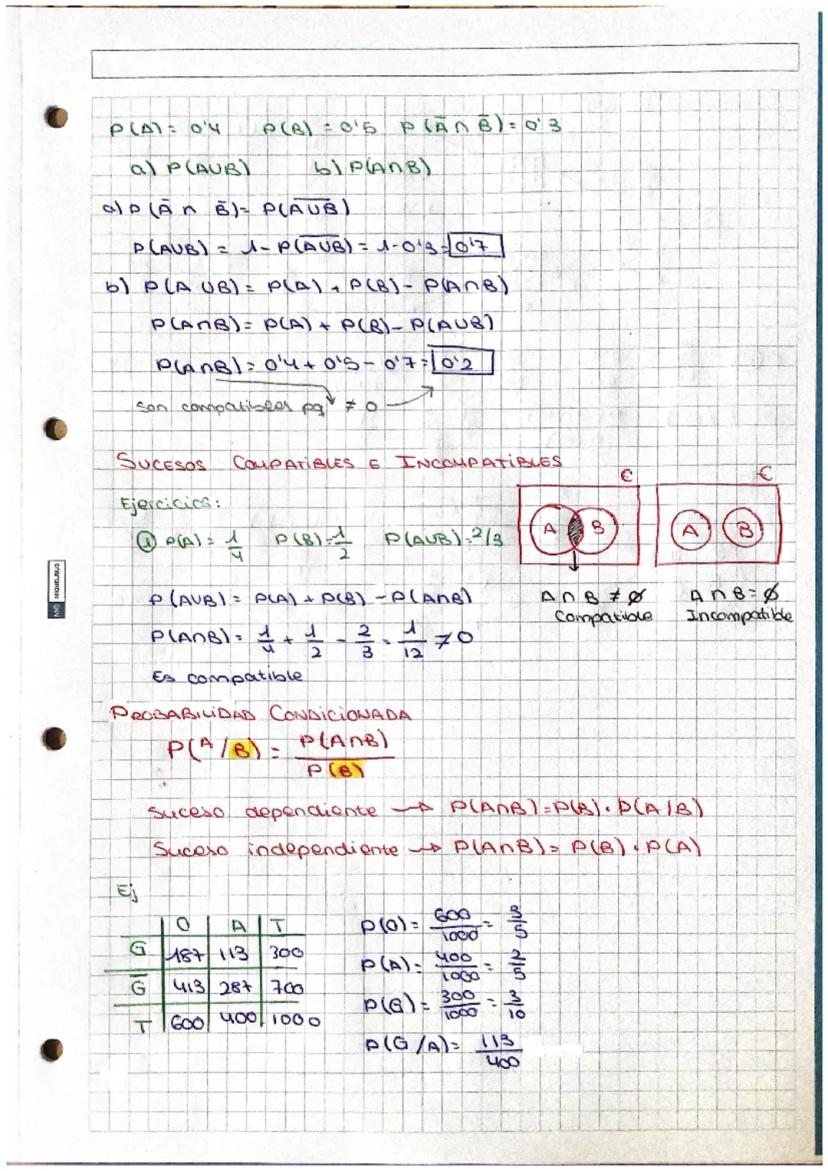 P(A) = 0'4 P(B) = 0'5 P(Ā ∩ B̄) = 0'3
a) P(A∪B) b) P(A∩B)
a) P(Ā ∩ B̄) = P(A̅∪̅B̅)
P(A∪B) = 1 - P(A̅∪̅B̅) = 1 - 0'3 = 0'7
b) P(A ∪B) = P(A) + P(B) - P(A∩B)
P(A∩B) = P(A) + P(B) - P(A∪B)
P(A∩B) = 0'4 + 0'5 - 0'7 = 0'2
son compatibles pq ≠ 0
SUCESOS COMPATIBLES E INCOMPATIBLES
Ejercicios:
① P(A) = 1/4 P(B) = 1/2 P(A∪B) = 2/3
€ €
A B A B
P(A∪B) = P(A) + P(B) - P(A∩B)
A ∩ B ≠ ∅ A ∩ B = ∅
Compatible Incompatible
P(A∩B) = 1/4 + 1/2 - 2/3 = 1/12 ≠ 0
Es compatible
PROBABILIDAD CONDICIONADA
P(A/B) = P(A∩B)/P(B)
Suceso dependiente → P(A∩B) = P(B) · P(A/B)
Suceso independiente → P(A∩B) = P(B) · P(A)
Ej
O A T
G 187 113 300
G̅ 413 287 700
T 600 400 1000
P(O) = 600/1000 = 3/5
P(A) = 400/1000 = 2/5
P(G) = 300/1000 = 3/10
P(G/A) = 113/400